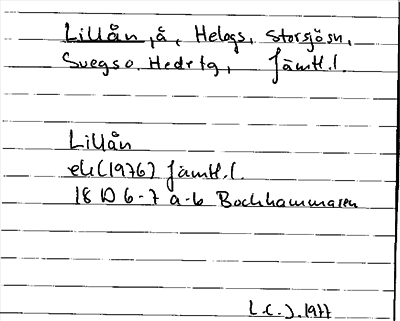 Lillån, å, Helags, Storsjösn,
Svegs o. Hedetg, Jämtl. l.
Lillån
ek (1976) Jämtl. l.
18 D 6-7 a-b Bockhammaren
L.C.J. 1977